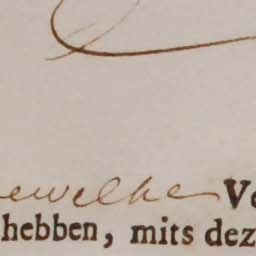 ewelke Vo
hebben, mits dez